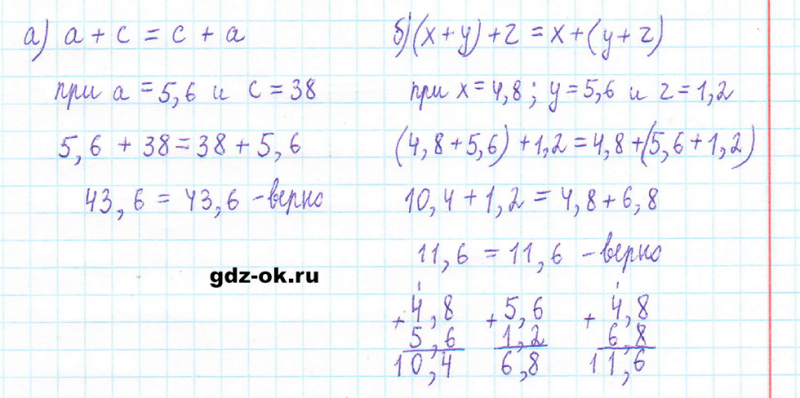 а) a + c = c + a
при a = 5,6 и c = 38
5,6 + 38 = 38 + 5,6
43,6 = 43,6 - верно
б) (x + y) + z = x + (y + z)
при x = 4,8; y = 5,6 и z = 1,2
(4,8 + 5,6) + 1,2 = 4,8 + (5,6 + 1,2)
10,4 + 1,2 = 4,8 + 6,8
11,6 = 11,6 - верно
gdz-ok.ru
1 1
+ 4,8 + 5,6 + 4,8
5,6 1,2 6,8
10,4 6,8 11,6